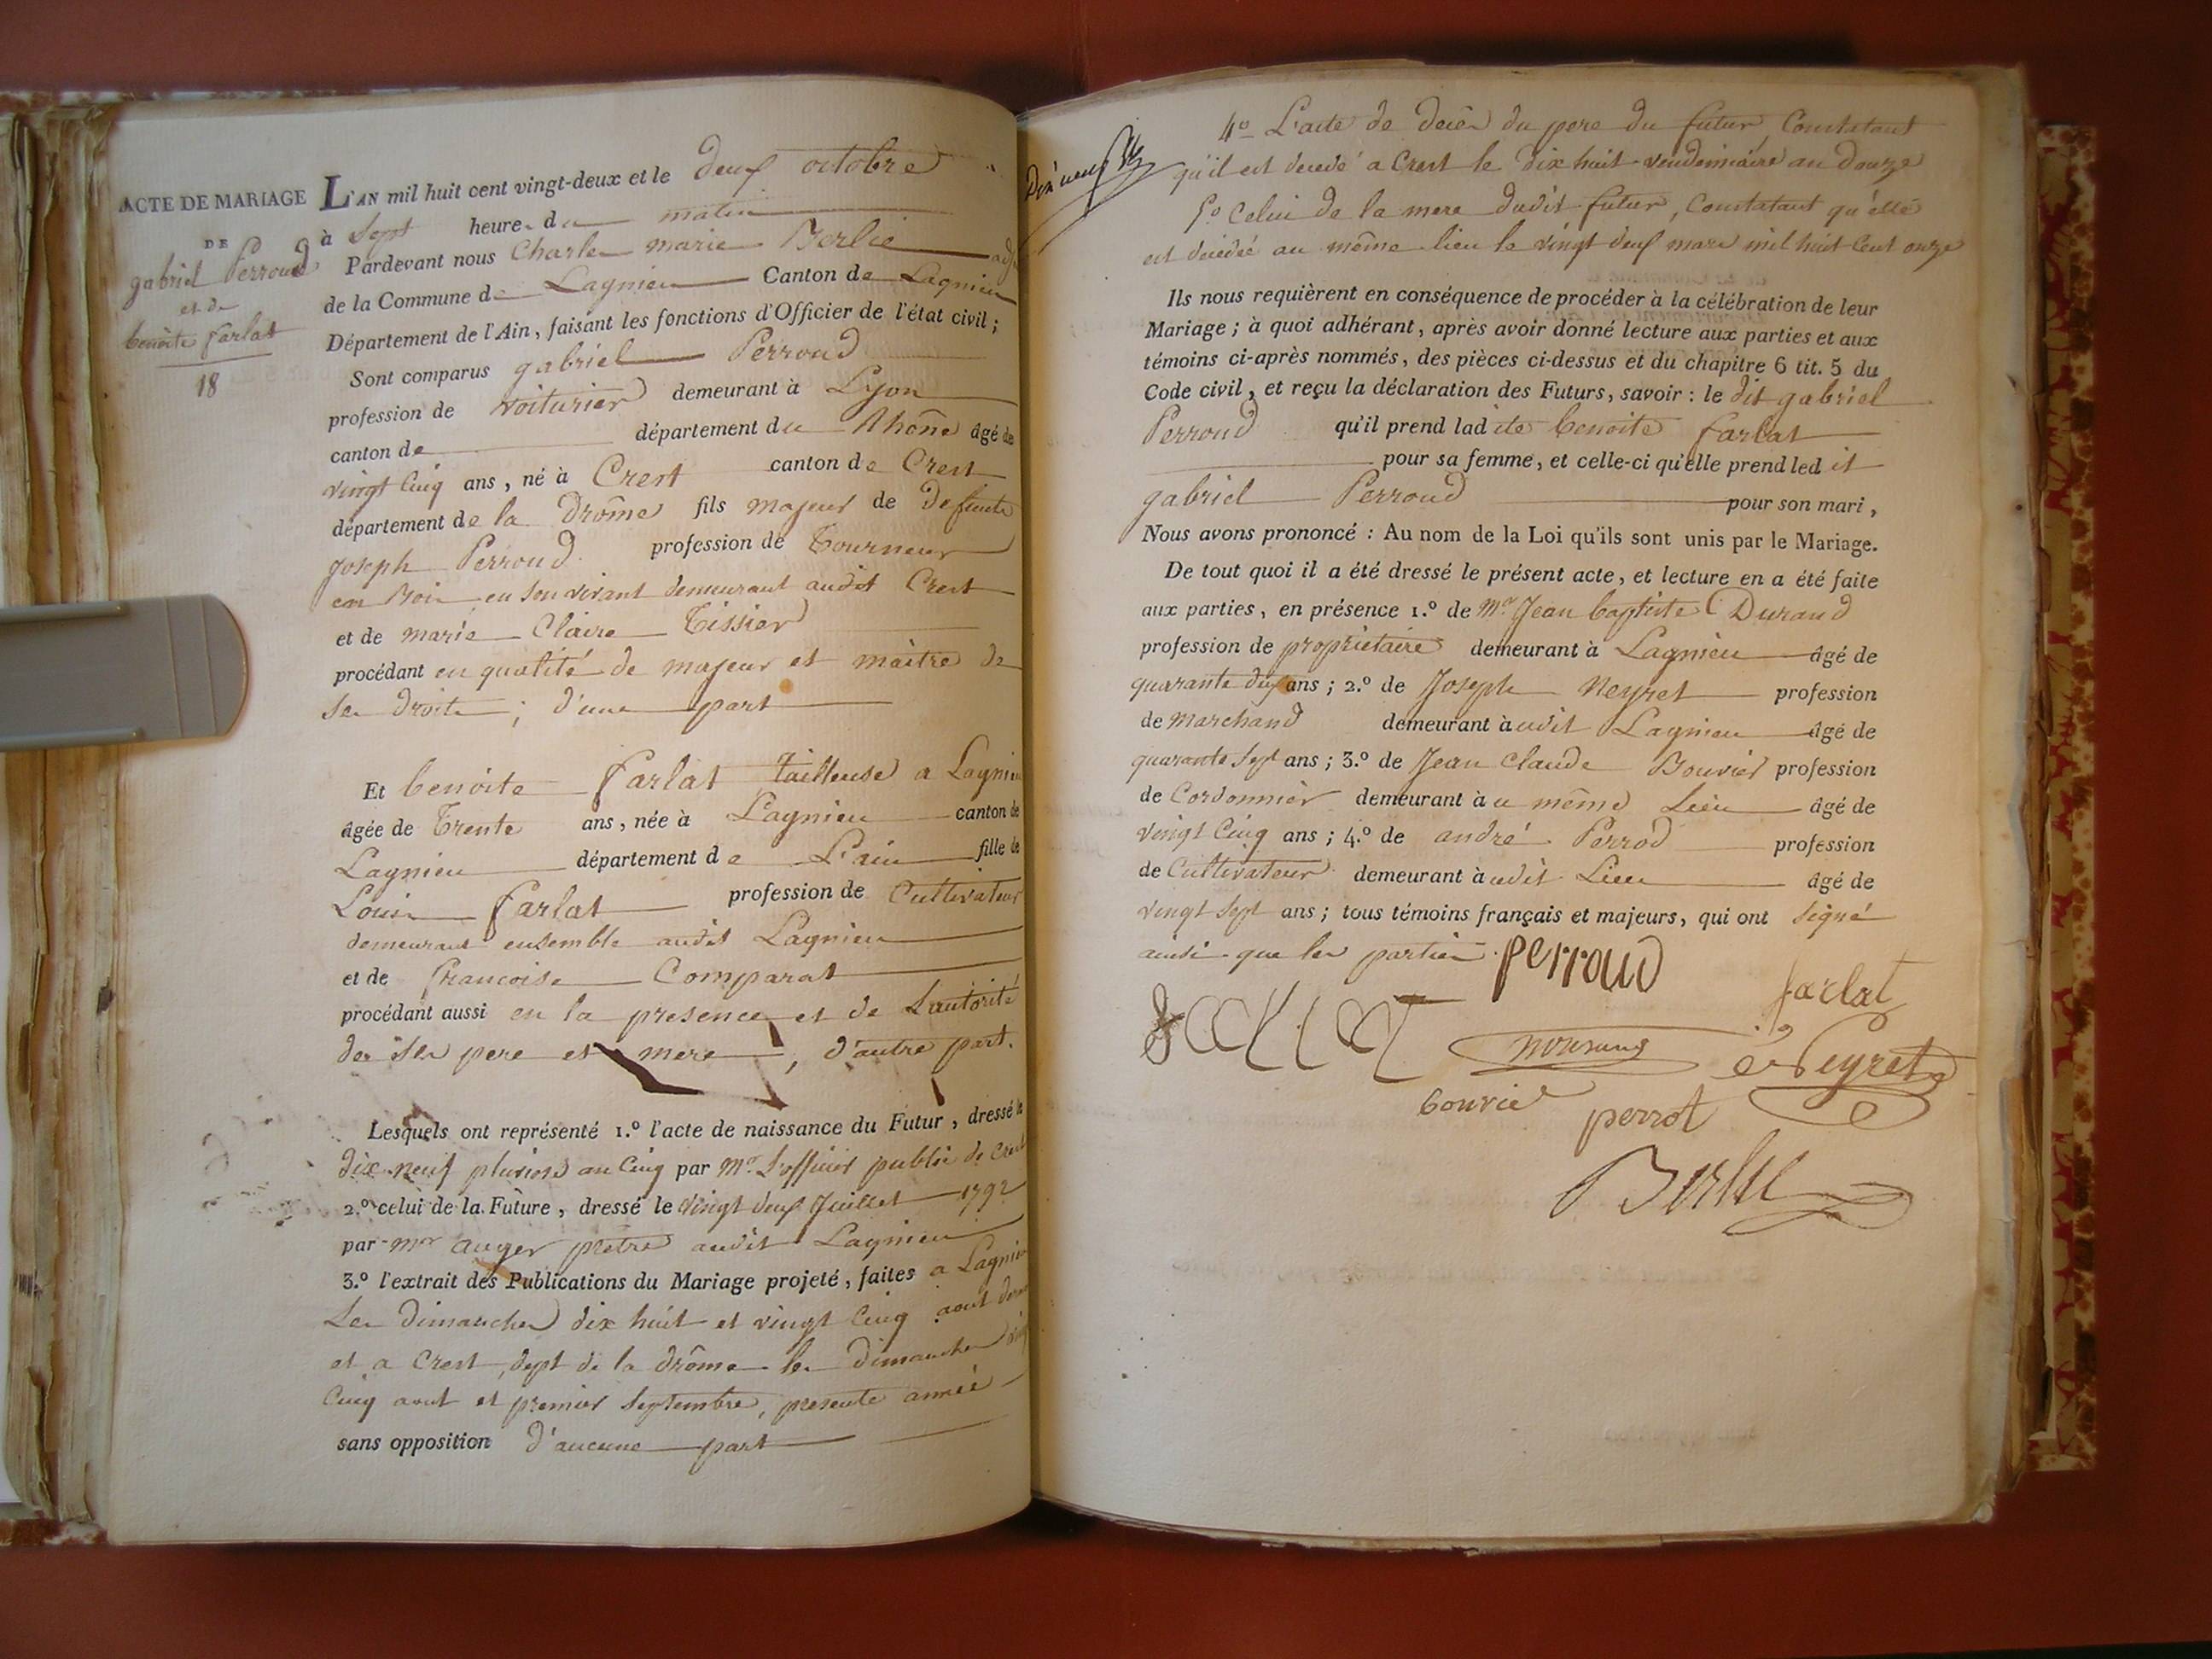 ACTE DE MARIAGE
DE
gabriel Perroud
et de
benoite farlat
18
L'AN mil huit cent vingt-deux et le deux octobre
à sept heures du matin
Pardevant nous Charles marie Berlie adj.
de la Commune de Lagnieu Canton de Lagnieu
Département de l'Ain, faisant les fonctions d'Officier de l'état civil ;
Sont comparus gabriel Perroud
profession de voiturier demeurant à Lyon
canton de département du Rhône âgé de
vingt cinq ans, né à Crest canton de Crest
département de la Drôme fils majeur de defunts
joseph Perroud profession de Tourneur
en Bois en son vivant demeurant audit Crest
et de marie Claire Tissier
procédant en qualité de majeur et maitre de
ses droits ; d'une part
Et benoite farlat tailleuse a Lagnieu
âgée de Trente ans, née à Lagnieu canton de
Lagnieu département de L'ain fille de
Louis farlat profession de Cultivateur
demeurant ensemble audit Lagnieu
et de francoise Comparat
procédant aussi en la presence et de Lautorité
des ses pere et mere, d'autre part.
Lesquels ont représenté 1.º l'acte de naissance du Futur, dressé le
dix neuf pluviose an Cinq par Mr. L'officier public de Crest
2.º celui de la Future, dressé le vingt deux Juillet 1792
par mr auger prêtre audit Lagnieu
3.º l'extrait des Publications du Mariage projeté, faites a Lagnieu
Les Dimanches dix huit et vingt Cinq aout dernier
et a Crest, dept de la drôme les Dimanches vingt
Cinq aout et premier septembre, presente année
sans opposition d'aucune part
dix neuf
4º L'acte de decès du pere du futur, Constatant
qu'il est decedé a Crest le dix huit vendemiaire an douze
5º Celui de la mere dudit futur, Constatant qu'elle
est decedée au même lieu le vingt deux mars mil huit Cent onze
Ils nous requièrent en conséquence de procéder à la célébration de leur
Mariage ; à quoi adhérant, après avoir donné lecture aux parties et aux
témoins ci-après nommés, des pièces ci-dessus et du chapitre 6 tit. 5 du
Code civil, et reçu la déclaration des Futurs, savoir : le dit gabriel
Perroud qu'il prend ladite benoite farlat
pour sa femme, et celle-ci qu'elle prend ledit
gabriel Perroud pour son mari,
Nous avons prononcé : Au nom de la Loi qu'ils sont unis par le Mariage.
De tout quoi il a été dressé le présent acte, et lecture en a été faite
aux parties, en présence 1.º de Mr Jean baptiste Durand
profession de proprietaire demeurant à Lagnieu âgé de
quarante deux ans ; 2.º de Joseph Neyret profession
de marchand demeurant audit Lagnieu âgé de
quarante sept ans ; 3.º de Jean Claude Bouvier profession
de Cordonnier demeurant au même Lieu âgé de
vingt Cinq ans ; 4.º de andré Perrod profession
de Cultivateur demeurant audit Lieu âgé de
vingt sept ans ; tous témoins français et majeurs, qui ont signé
ainsi que les parties.
Perroud
farlat
Neyret
bouvier
perrot
Berlie